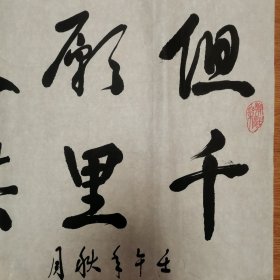 但千
願里
共
壬午年秋月